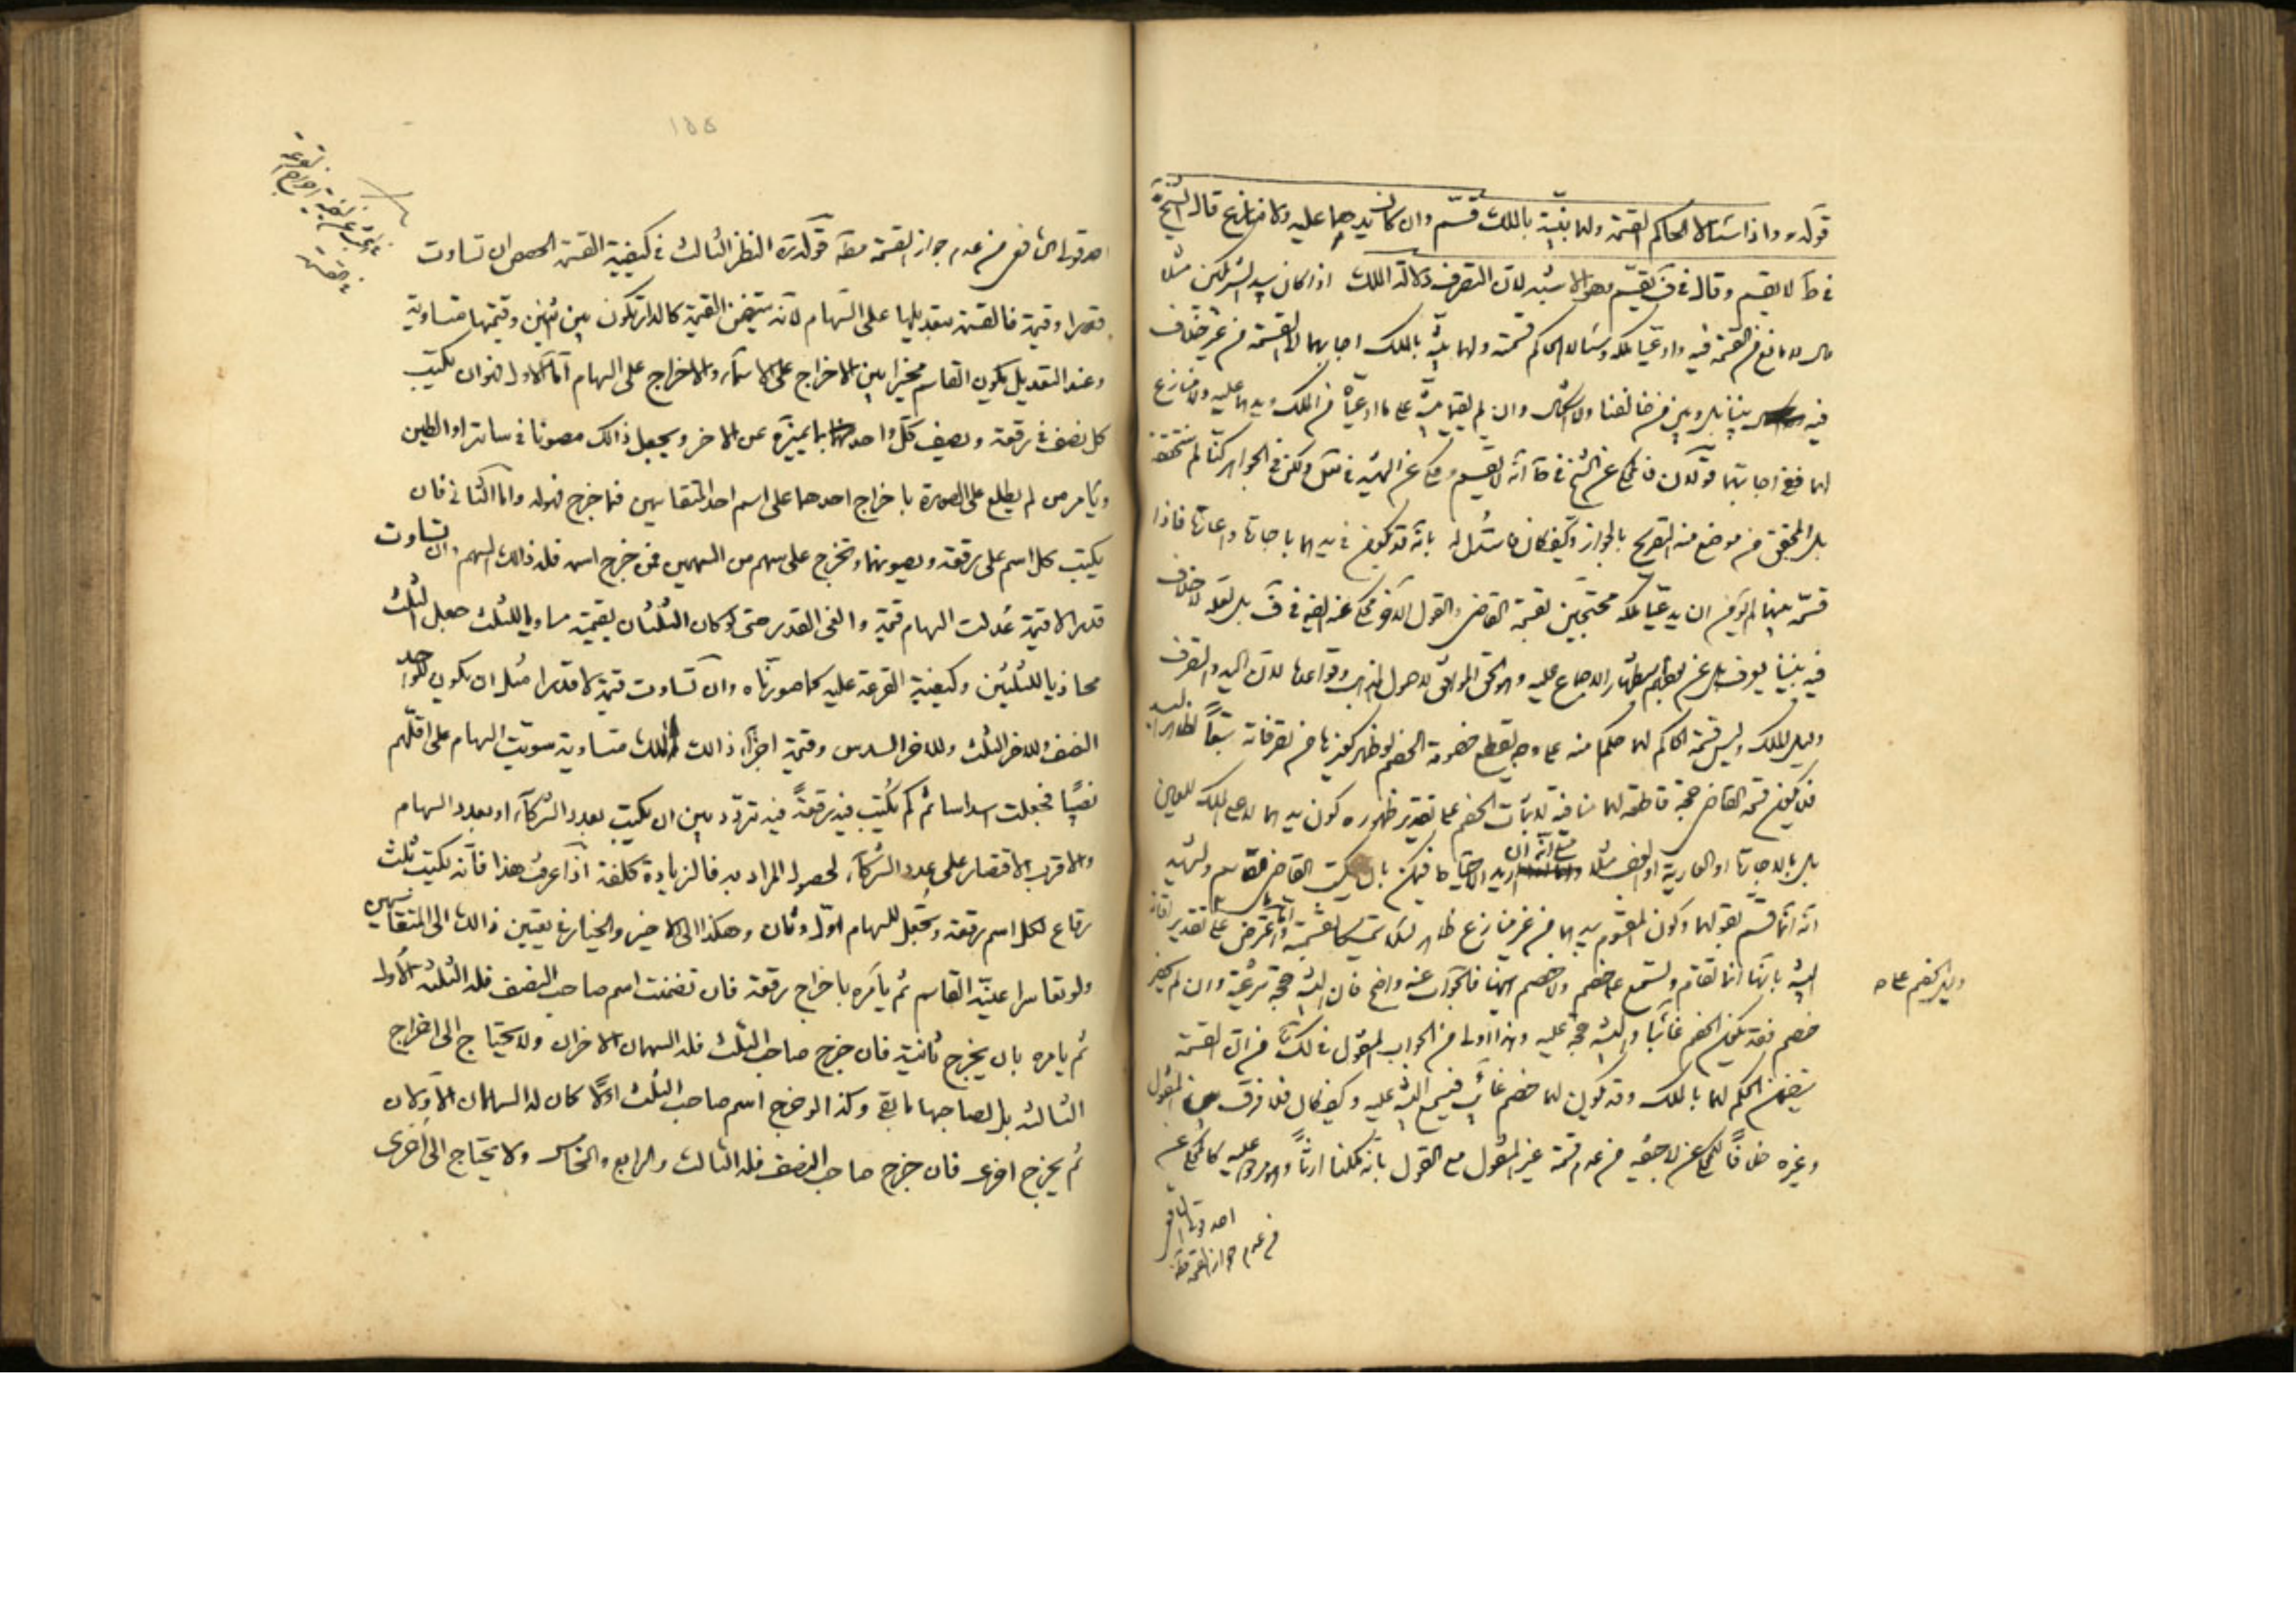 قوله ره واذا سئالا الحاكم القسمة ولهما بيّنة بالملك قسّم وان كانت يدهما عليه ولا منازع قال الشيخ ره
في ط لا يقسم وقال في ف يقسّم وهو الاشبه لان التصرف دلالة الملك اذا كان بيد الشريكين مثلا
مال لا مانع من القسمة فيه وادعيا ملكه وسئالا الحاكم قسمته ولهما بيّنة بالملك اجابهما الى القسمة من غير خلاف
فيه بيننا بل وبين من خالفنا ولا اشكال وان لم يقيما بيّنة على ما ادعياه من الملك ويدهما عليه ولا منازع
لهما ففي اجابتهما قولان فالمحكي عن الشيخ في ط انه لا يقسم
بل المحقق في موضع منه التصريح بالجواز وكيف كان فاستدل له بانه قد يكون في يدهما باجارة او عارية فاذا
قسّمه بينهما لم يؤمن ان يدعيا ملكه محتجين بقسمة القاضي والقول الاخر محكي عنه ايضا في ف بل لعله لا خلاف
فيه بيننا يعرف بل عن بعضهم استظهار الاجماع عليه وهو الحق الموافق لاصول المذهب وقواعدها لان اليد والتصرف
دليل الملك وليس قسمة الحاكم لهما حكما منه على وجه يقطع خصومة الخصم لو ظهر
فلا يكون قسمة القاضي حجة قاطعة لهما منافية لاثبات الخصم على تقدير ظهوره كون يدهما لا على الملك للعين
بل بالاجارة او العارية او الغصب مثلا مع انه ان اريد الاحتياط فيمكن بان يكتب القاضي
انه انما قسّم بقولهما وكون المقسوم بيدهما من غير منازع ظاهر لئلا يتمسكا بقسمته واعترض على تقدير اقامة
البيّنة بانها انما تقام وتسمع على خصم ولا خصم ههنا فالجواب عنه واضح فان البيّنة حجة شرعية وان لم يكن
خصم فقد يكون الخصم غائبا والبيّنة حجة عليه وهذا اولى من الجواب المنقول في لك من ان القسمة
يتضمن الحكم لهما بالملك وقد يكون لهما خصم غائب فيسمع البيّنة عليه وكيف كان فلا فرق بين المنقول
وغيره خلافا للمحكي عن ابي حنيفه من عدم قسمة غير المنقول مع القول بانه ملكنا ارثا
احد قولي الشافعي
من عدم جواز القسمة مط
وليس الخصم
احد قولي الشافعي من عدم جواز القسمة مط قوله ره النظر الثالث في كيفية القسمة الحصص ان تساوت
قدرا وقيمة فالقسمة بتعديلها على السهام لانه يتضمن القيمة كالدار تكون بين اثنين وقيمتها متساوية
وعند التعديل يكون القاسم مخيرا بين الاخراج على الاسماء والاخراج على السهام اما الاول فهو ان يكتب
كل نصف في رقعة ويصف كل واحد بما يميزه عن الاخر ويجعل ذالك مصونا في ساتر او الطين
ويامر من لم يطلع على الصورة باخراج احدهما على اسم احد المتقاسمين فما خرج فهو له واما الثاني فان
يكتب كل اسم على رقعة ويصونهما وتخرج على سهم من السهمين فمن خرج اسمه فله ذالك السهم وان تساوت
قدرا لا قيمة عدلت السهام قيمة والغى القدر حتى لو كان الثلثان بقيمته مساويا للثلث جعل الثلث
محاذيا للثلثين وكيفية القرعة عليه كما صورناه وان تساوت قيمة لا قدرا مثل ان يكون للواحد
النصف وللاخر الثلث وللاخر السدس وقيمة اجزاء ذالك الملك متساوية سويت السهام على اقلهم
نصيبا فجعلت اسداسا ثم كم يكتب فيه رقعة فيه تردد بين ان يكتب بعدد الشركاء او بعدد السهام
والاقرب الاقتصار على عدد الشركاء لحصول المراد به فالزيادة كلفة اذا عرفت هذا فانه يكتب ثلث
رقاع لكل اسم رقعة وتجعل للسهام اول وثان وهكذا الى الاخير والخيار في تعيين ذالك الى المتقاسمين
ولو تعاسرا عيّنه القاسم ثم يامره باخراج رقعة فان تضمنت اسم صاحب النصف فله الثلثة الاولى
ثم يامره بان يخرج ثانية فان خرج صاحب الثلث فله السهمان الاخران ولا يحتاج الى اخراج
الثالثة بل لصاحبها ما بقي وكذا لو خرج اسم صاحب الثلث اولا كان له السهمان الاولان
ثم يخرج اخرى فان خرج صاحب النصف فله الثالث والرابع والخامس ولا يحتاج الى اخرى